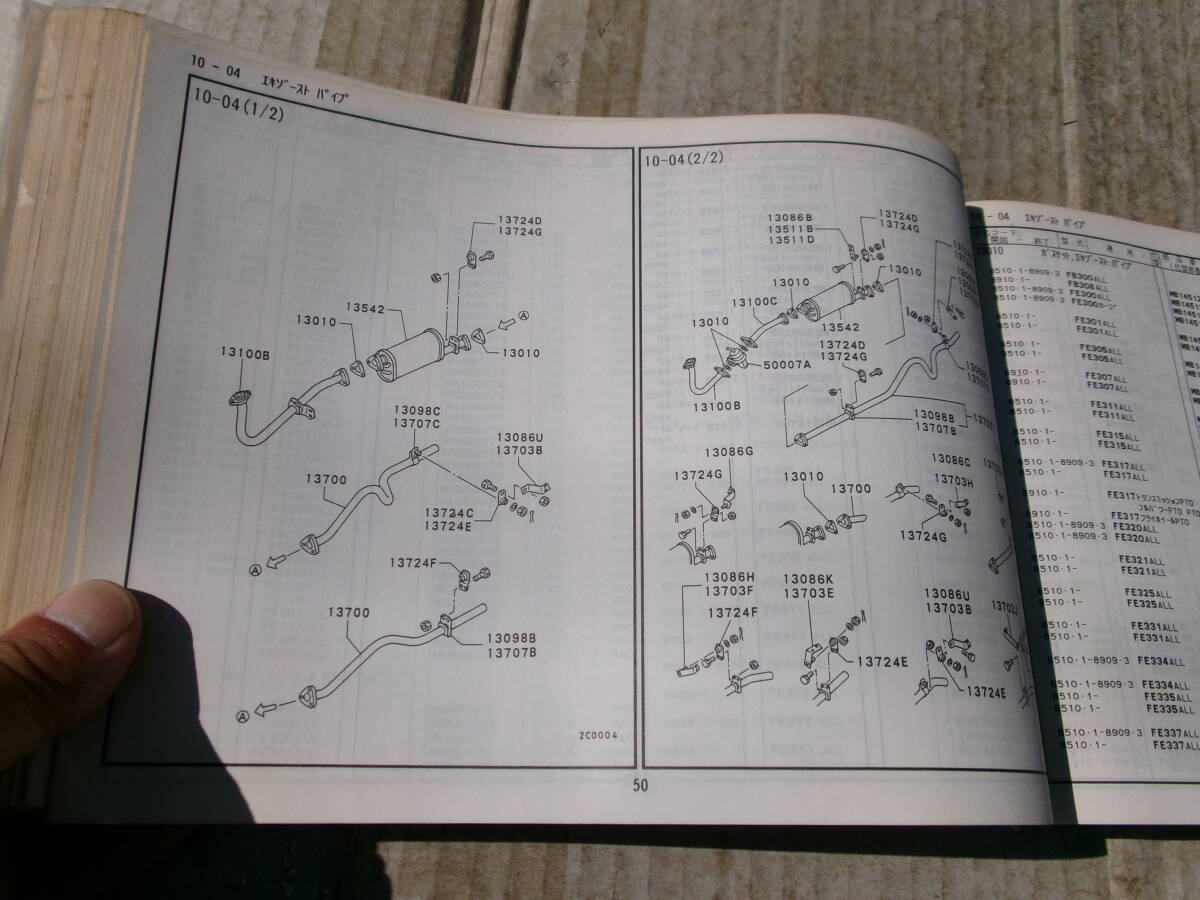 10 - 04 ｴｷｿﾞｰｽﾄ ﾊﾟｲﾌﾟ
10-04(1/2)
13724D
13724G
13542
13010
13010
Ⓐ
13100B
13098C
13707C
13086U
13703B
13700
13724C
13724E
Ⓐ
13724F
13700
13098B
13707B
Ⓐ
2C0004
10-04(2/2)
13086B
13511B
13511D
13724D
13724G
13010
13010
13100C
13542
13010
13724D
13724G
50007A
13100B
13098B
13707B
13086G
13724G
13010
13700
13086C
13703H
13724G
13086H
13703F
13724F
13086K
13703E
13724E
13086U
13703B
13724E
13703J
50
10 - 04 ｴｷｿﾞｰｽﾄ ﾊﾟｲﾌﾟ
終了 型式
ｶﾞｽｹｯﾄ,ｴｷｿﾞｰｽﾄ ﾊﾟｲﾌﾟ
8510·1-8909·3 FB300ALL
8910·1- FB308ALL
8510·1-8909·3 FE300ALL
8510·1- FE301ALL
FE301ALL
8510·1- FE305ALL
FE305ALL
8910·1- FE307ALL
8910·1- FE307ALL
8510·1- FE311ALL
8510·1- FE311ALL
8510·1- FE315ALL
8510·1- FE315ALL
8510·1-8909·3 FE317ALL
8510·1- FE317ALL
8910·1- FE317ﾄﾗﾝｽﾐｯｼｮﾝPTO
ﾌﾙﾊﾟﾜｰPTO
8910·1- FE317ﾌﾗｲﾎｲｰﾙPTO
8510·1-8909·3 FE320ALL
8510·1-8909·3 FE320ALL
8510·1- FE321ALL
8510·1- FE321ALL
8510·1- FE325ALL
8510·1- FE325ALL
8510·1- FE331ALL
8510·1- FE331ALL
8510·1-8909·3 FE334ALL
8510·1-8909·3 FE334ALL
8510·1- FE335ALL
8510·1- FE335ALL
8510·1-8909·3 FE337ALL
8510·1- FE337ALL